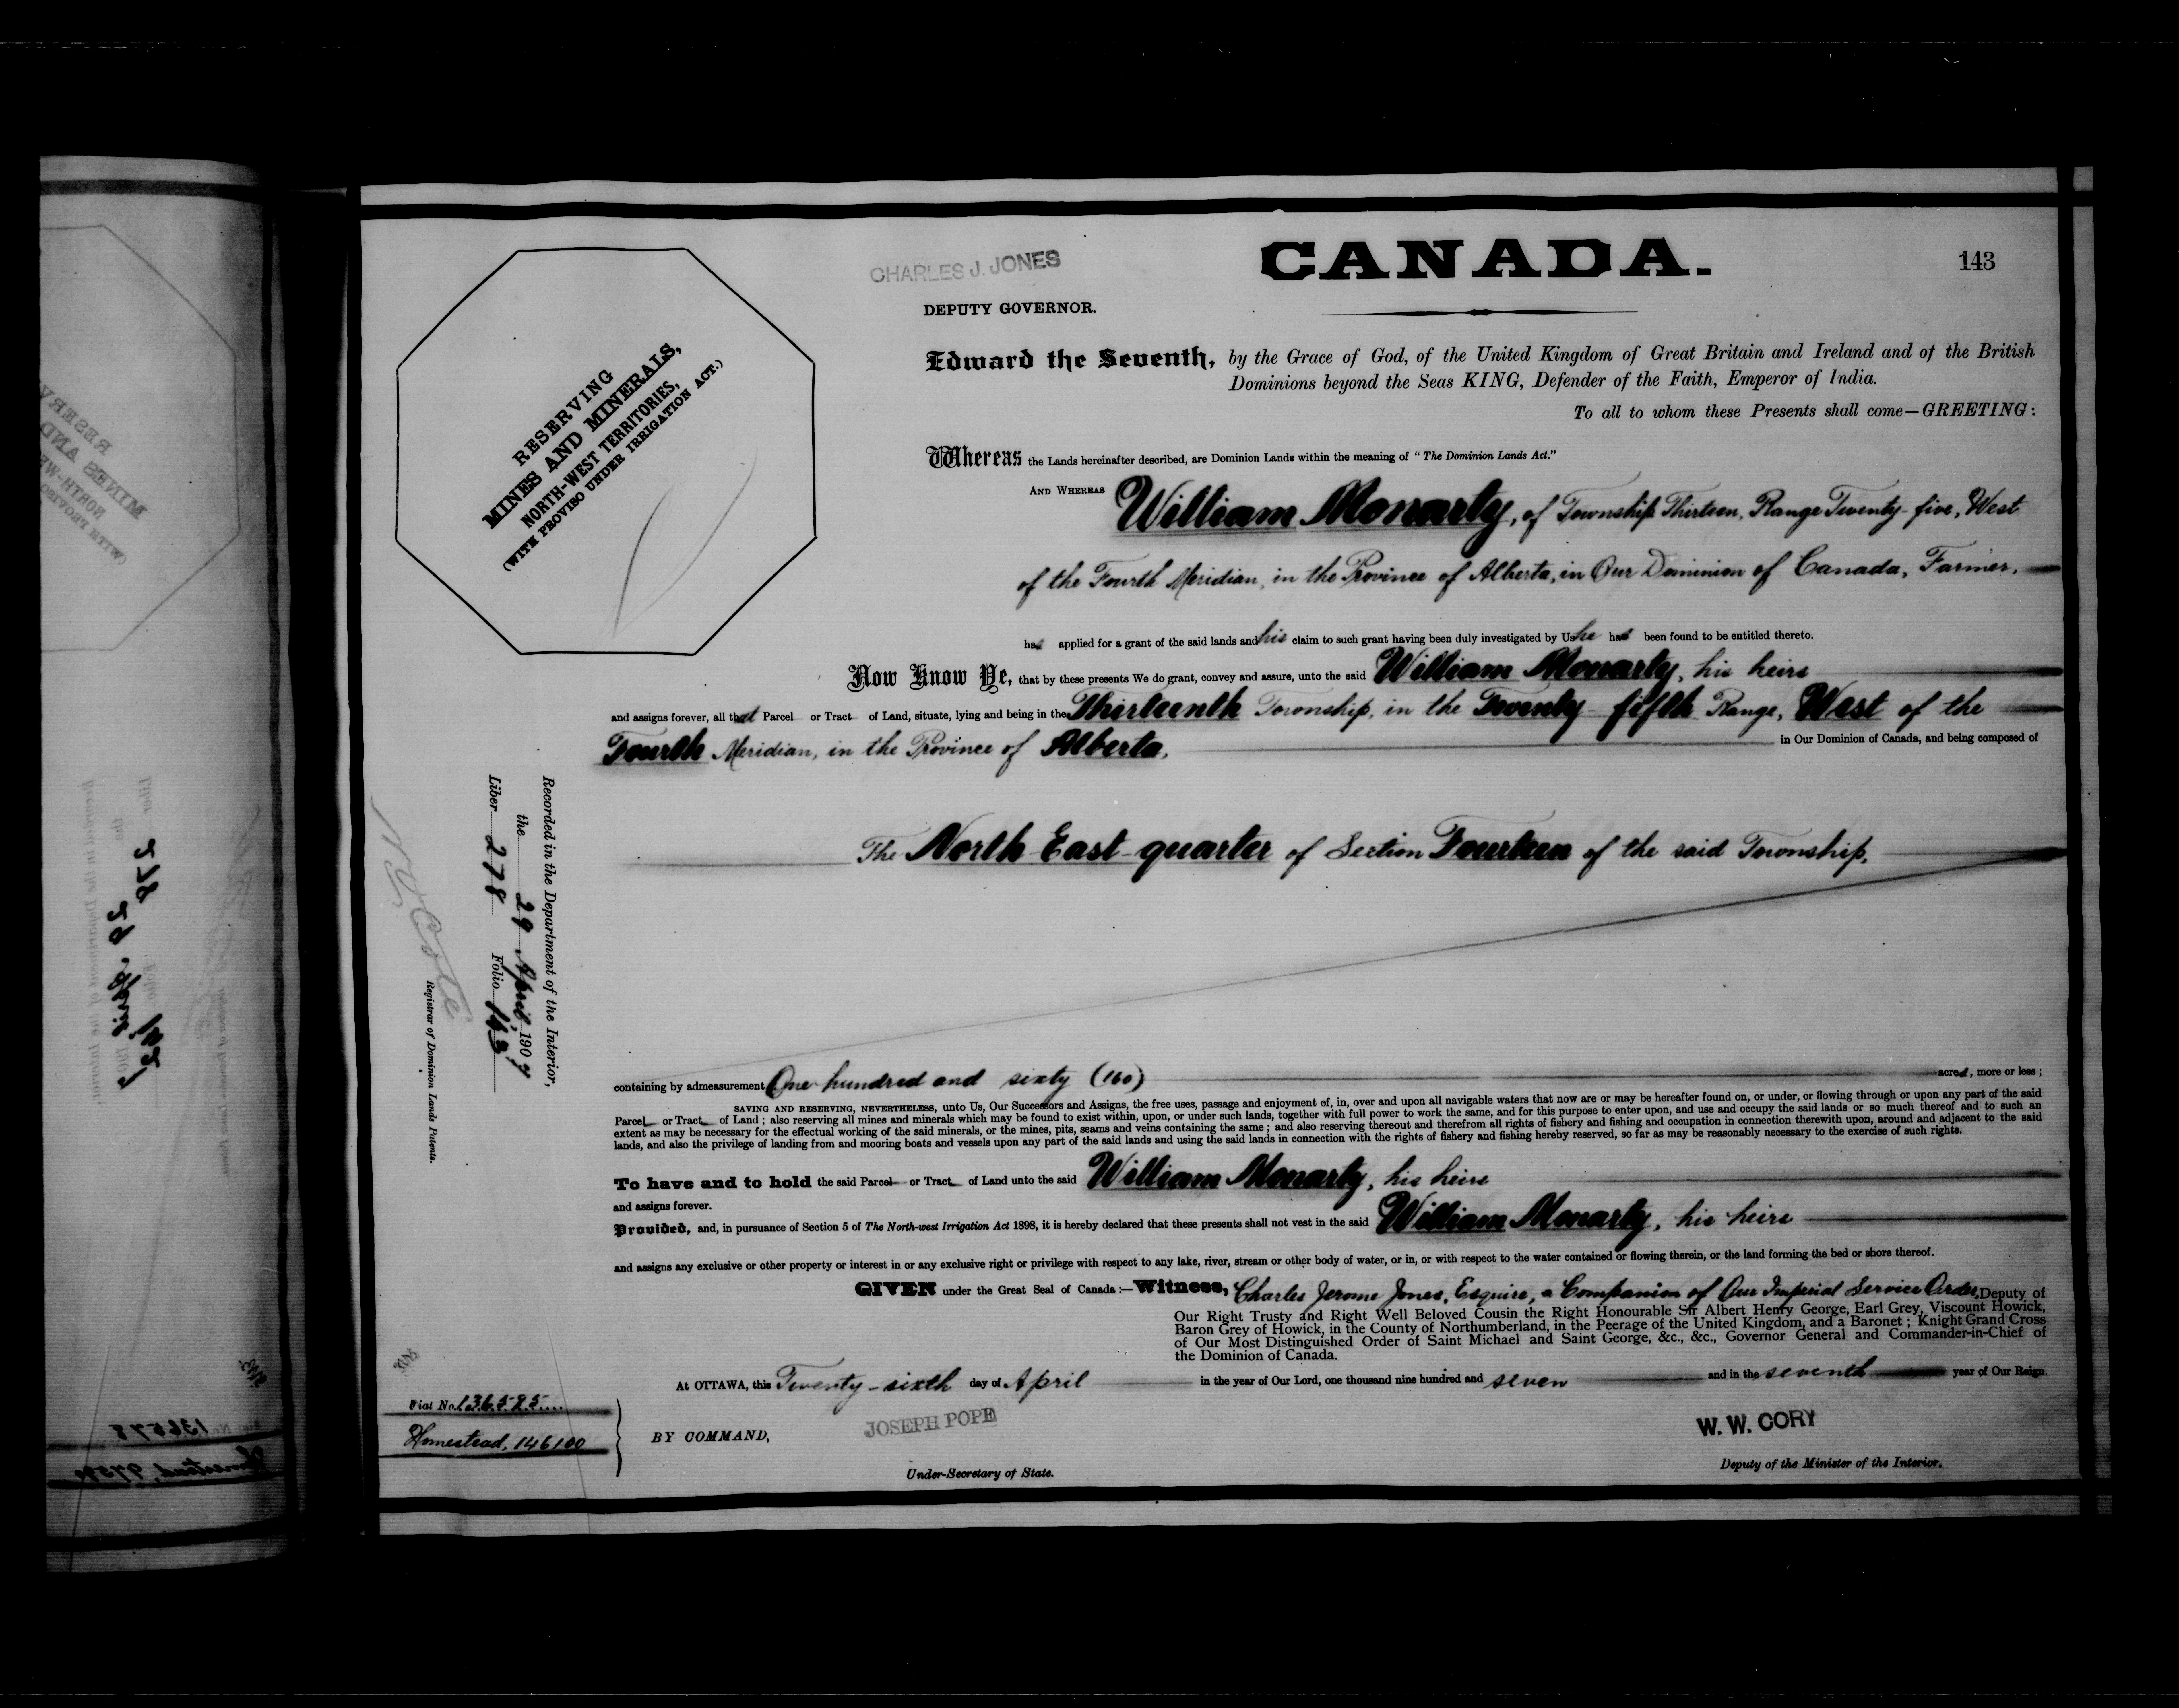 CANADA.
143
CHARLES J. JONES
DEPUTY GOVERNOR.
RESERVING
MINES AND MINERALS,
NORTH-WEST TERRITORIES,
(WITH PROVISO UNDER IRRIGATION ACT.)
Edward the Seventh, by the Grace of God, of the United Kingdom of Great Britain and Ireland and of the British
Dominions beyond the Seas KING, Defender of the Faith, Emperor of India.
To all to whom these Presents shall come—GREETING:
Whereas the Lands hereinafter described, are Dominion Lands within the meaning of "The Dominion Lands Act."
AND WHEREAS William Monarty, of Township Thirteen, Range Twenty-five, West
of the Fourth Meridian, in the Province of Alberta, in Our Dominion of Canada, Farmer,
has applied for a grant of the said lands and his claim to such grant having been duly investigated by Us he has been found to be entitled thereto.
Now Know Ye, that by these presents We do grant, convey and assure, unto the said William Monarty, his heirs
and assigns forever, all that Parcel or Tract of Land, situate, lying and being in the Thirteenth Township, in the Twenty-fifth Range, West of the
Fourth Meridian, in the Province of Alberta, in Our Dominion of Canada, and being composed of
The North East quarter of Section Fourteen of the said Township,
containing by admeasurement One hundred and sixty (160) acres, more or less;
SAVING AND RESERVING, NEVERTHELESS, unto Us, Our Successors and Assigns, the free uses, passage and enjoyment of, in, over and upon all navigable waters that now are or may be hereafter found on, or under, or flowing through or upon any part of the said
Parcel or Tract of Land; also reserving all mines and minerals which may be found to exist within, upon, or under such lands, together with full power to work the same, and for this purpose to enter upon, and use and occupy the said lands or so much thereof and to such an
extent as may be necessary for the effectual working of the said minerals, or the mines, pits, seams and veins containing the same; and also reserving thereout and therefrom all rights of fishery and fishing and occupation in connection therewith upon, around and adjacent to the said
lands, and also the privilege of landing from and mooring boats and vessels upon any part of the said lands and using the said lands in connection with the rights of fishery and fishing hereby reserved, so far as may be reasonably necessary to the exercise of such rights.
To have and to hold the said Parcel or Tract of Land unto the said William Monarty, his heirs
and assigns forever.
Provided, and, in pursuance of Section 5 of The North-west Irrigation Act 1898, it is hereby declared that these presents shall not vest in the said William Monarty, his heirs
and assigns any exclusive or other property or interest in or any exclusive right or privilege with respect to any lake, river, stream or other body of water, or in, or with respect to the water contained or flowing therein, or the land forming the bed or shore thereof.
GIVEN under the Great Seal of Canada:—Witness, Charles Jerome Jones, Esquire, a Companion of Our Imperial Service Order, Deputy of
Our Right Trusty and Right Well Beloved Cousin the Right Honourable Sir Albert Henry George, Earl Grey, Viscount Howick,
Baron Grey of Howick, in the County of Northumberland, in the Peerage of the United Kingdom, and a Baronet; Knight Grand Cross
of Our Most Distinguished Order of Saint Michael and Saint George, &c., &c., Governor General and Commander-in-Chief of
the Dominion of Canada.
At OTTAWA, this Twenty-sixth day of April in the year of Our Lord, one thousand nine hundred and seven and in the seventh year of Our Reign
BY COMMAND,
JOSEPH POPE
Under-Secretary of State.
W. W. CORY
Deputy of the Minister of the Interior.
Recorded in the Department of the Interior,
the 29 April, 1907
Liber 278 Folio 143
Registrar of Dominion Lands Patents.
Fiat No. 136585
Homestead, 146100